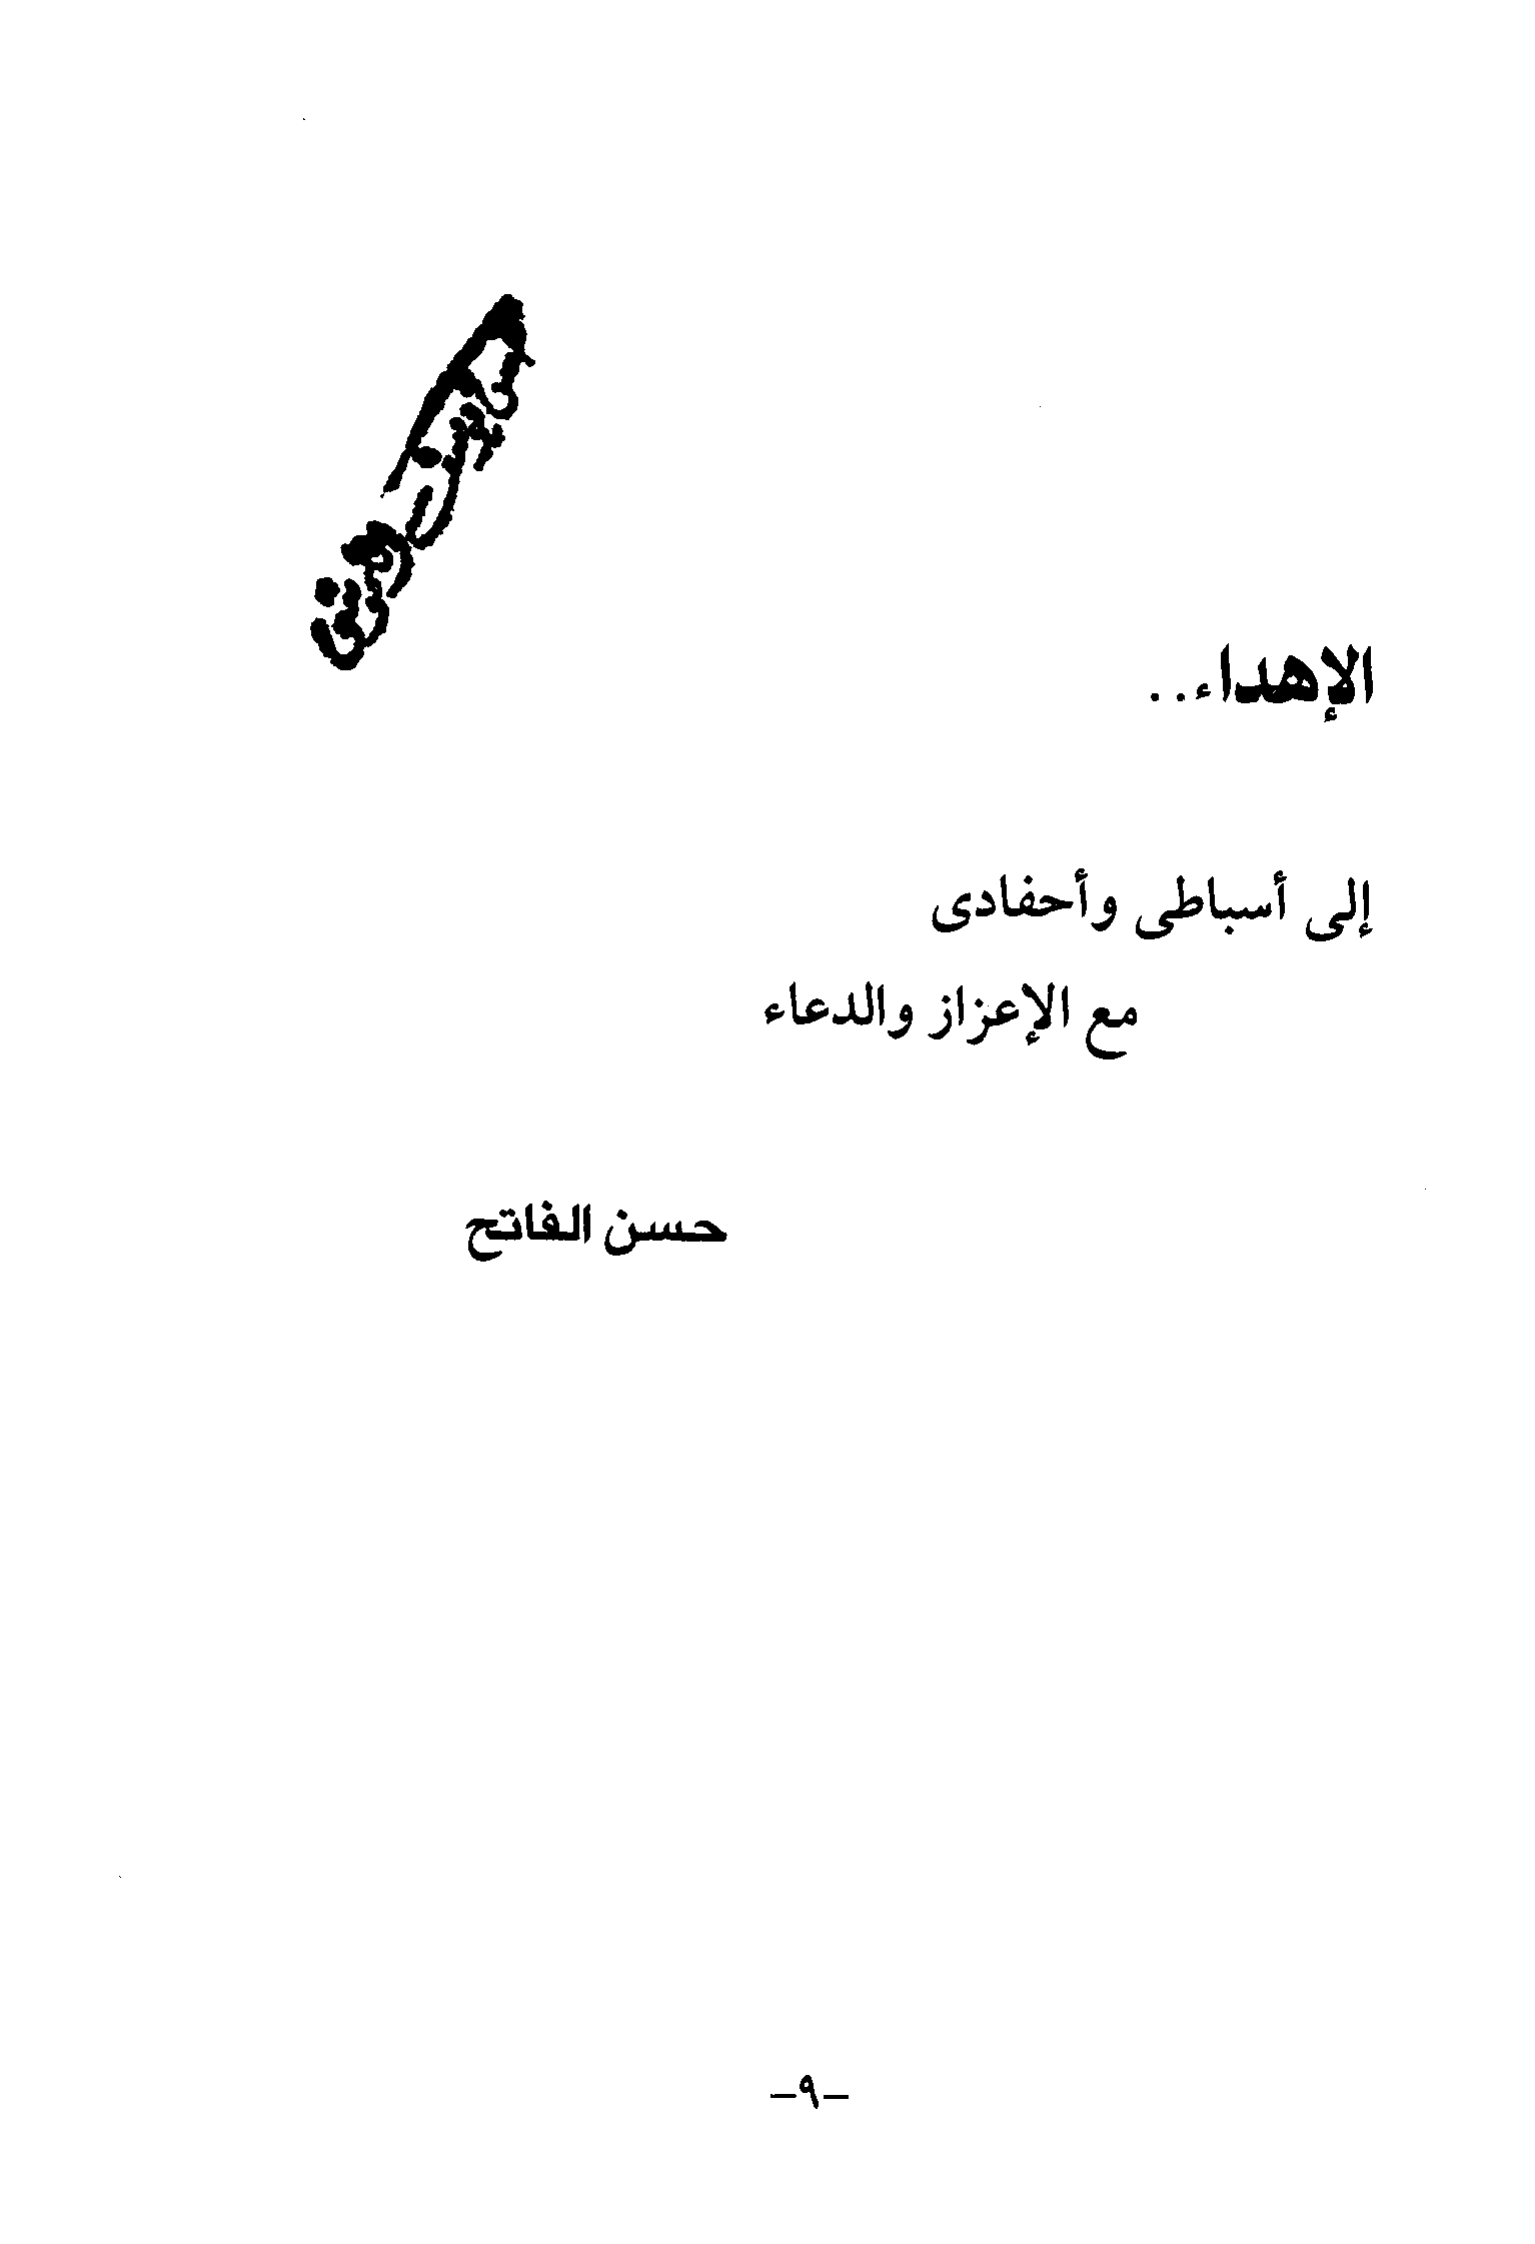 الإهداء..
إلى أسباطى وأحفادى
مع الإعزاز والدعاء
حسن الفاتح
-٩-